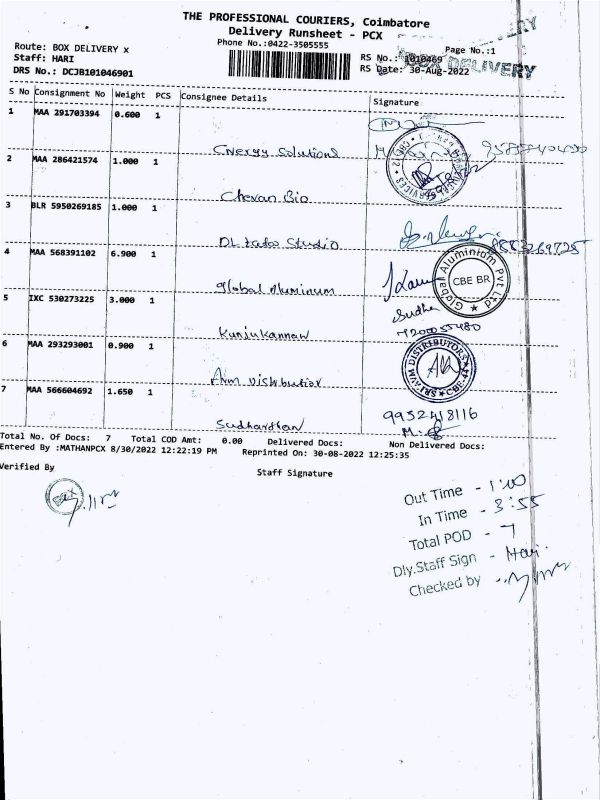 THE PROFESSIONAL COURIERS, Coimbatore
Delivery Runsheet - PCX
Phone No.:0422-3505555
Page No.:1
Route: BOX DELIVERY x
Staff: HARI
DRS No.: DCJB101046901
RS No.: 1010469
RS Date: 30-Aug-2022
BOX DELIVERY
S No Consignment No Weight PCS Consignee Details Signature
1 MAA 291703394 0.600 1
Energy Solutions
2 MAA 286421574 1.000 1
Chevan Bio
3 BLR 5950269185 1.000 1
Studio
4 MAA 568391102 6.900 1
Global Aluminum
Global Aluminium Pvt Ltd
CBE BR
5 IXC 530273225 3.000 1
Sudha
Kunjukannan
6 MAA 293293001 0.900 1
SRI AIM DISTRIBUTORS
CBE
7 MAA 566604692 1.650 1
9952418116
Sudharshan
Total No. Of Docs: 7 Total COD Amt: 0.00 Delivered Docs: Non Delivered Docs:
Entered By :MATHANPCX 8/30/2022 12:22:19 PM Reprinted On: 30-08-2022 12:25:35
Verified By Staff Signature
Out Time - 1:00
In Time - 3:55
Total POD - 7
Dly.Staff Sign - Hari.
Checked by